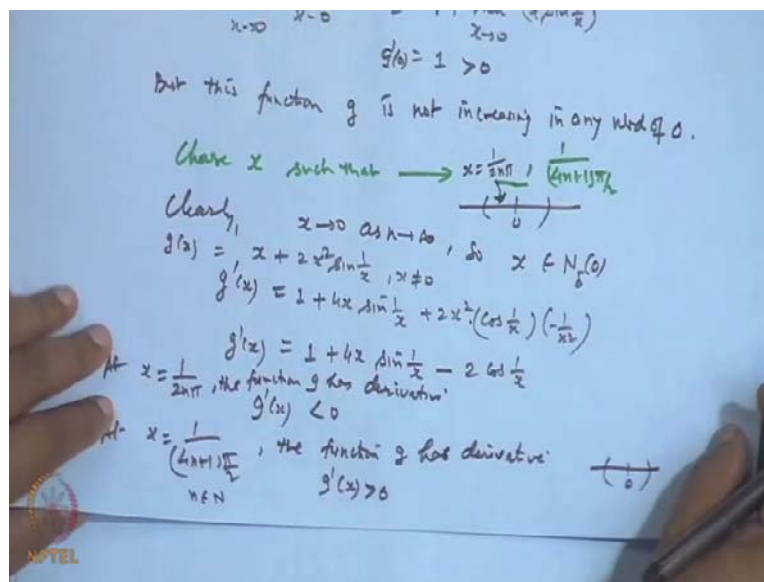 x→0 x-0 x→0 (2x sin 1/x)
g'(0) = 1 > 0
But this function g is not increasing in any nbd of 0.
Chose x such that → x = 1/2nπ , 1/(4n+1)π/2
( 0 )
Clearly, x→0 as n→∞, so x ∈ N_δ(0)
g(x) = x + 2x² sin 1/x , x≠0
g'(x) = 1 + 4x sin 1/x + 2x².(cos 1/x)(-1/x²)
g'(x) = 1 + 4x sin 1/x - 2 cos 1/x
At x = 1/2nπ, the function g has derivative
g'(x) < 0
At x = 1/(4n+1)π/2 , the function g has derivative
n∈N g'(x) > 0
( 0 )
NPTEL